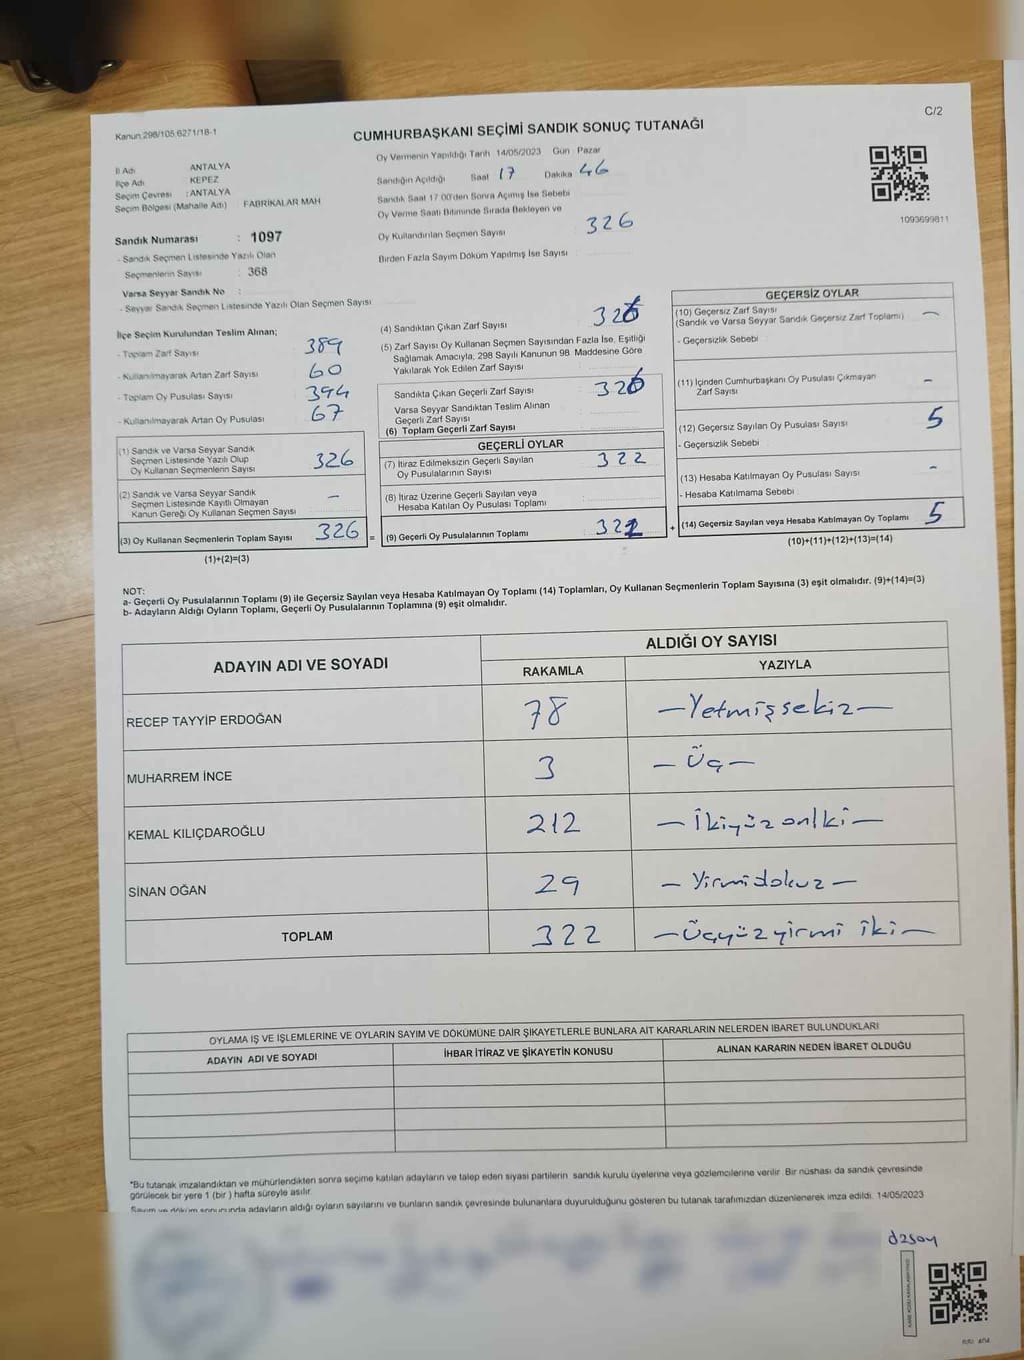 C/2
Kanun 298/105,6271/18-1
CUMHURBAŞKANI SEÇİMİ SANDIK SONUÇ TUTANAĞI
İl Adı ANTALYA
İlçe Adı KEPEZ
Seçim Çevresi : ANTALYA
Seçim Bölgesi (Mahalle Adı) FABRİKALAR MAH
Oy Vermenin Yapıldığı Tarih 14/05/2023 Gün : Pazar
Sandığın Açıldığı Saat 17 Dakika 46
Sandık Saat 17.00'den Sonra Açımış İse Sebebi
Oy Verme Saati Bitiminde Sırada Bekleyen ve
Oy Kullandırılan Seçmen Sayısı 326
Birden Fazla Sayım Döküm Yapılmış İse Sayısı
1093699811
Sandık Numarası : 1097
- Sandık Seçmen Listesinde Yazılı Olan
Seçmenlerin Sayısı : 368
Varsa Seyyar Sandık No :
- Seyyar Sandık Seçmen Listesinde Yazılı Olan Seçmen Sayısı
İlçe Seçim Kurulundan Teslim Alınan;
- Toplam Zarf Sayısı 389
- Kullanılmayarak Artan Zarf Sayısı 60
- Toplam Oy Pusulası Sayısı 394
- Kullanılmayarak Artan Oy Pusulası 67
(1) Sandık ve Varsa Seyyar Sandık
Seçmen Listesinde Yazılı Olup
Oy Kullanan Seçmenlerin Sayısı 326
(2) Sandık ve Varsa Seyyar Sandık
Seçmen Listesinde Kayıtlı Olmayan
Kanun Gereği Oy Kullanan Seçmen Sayısı –
(3) Oy Kullanan Seçmenlerin Toplam Sayısı 326 =
(1)+(2)=(3)
(4) Sandıktan Çıkan Zarf Sayısı 326
(5) Zarf Sayısı Oy Kullanan Seçmen Sayısından Fazla İse, Eşitliği
Sağlamak Amacıyla, 298 Sayılı Kanunun 98. Maddesine Göre
Yakılarak Yok Edilen Zarf Sayısı
Sandıkta Çıkan Geçerli Zarf Sayısı 326
Varsa Seyyar Sandıktan Teslim Alınan
Geçerli Zarf Sayısı
(6) Toplam Geçerli Zarf Sayısı
GEÇERLİ OYLAR
(7) İtiraz Edilmeksizin Geçerli Sayılan
Oy Pusulalarının Sayısı 322
(8) İtiraz Üzerine Geçerli Sayılan veya
Hesaba Katılan Oy Pusulası Toplamı
(9) Geçerli Oy Pusulalarının Toplamı 322 +
GEÇERSİZ OYLAR
(10) Geçersiz Zarf Sayısı
(Sandık ve Varsa Seyyar Sandık Geçersiz Zarf Toplamı) –
- Geçersizlik Sebebi
(11) İçinden Cumhurbaşkanı Oy Pusulası Çıkmayan
Zarf Sayısı –
(12) Geçersiz Sayılan Oy Pusulası Sayısı 5
- Geçersizlik Sebebi
(13) Hesaba Katılmayan Oy Pusulası Sayısı –
- Hesaba Katılmama Sebebi
(14) Geçersiz Sayılan veya Hesaba Katılmayan Oy Toplamı 5
(10)+(11)+(12)+(13)=(14)
NOT:
a- Geçerli Oy Pusulalarının Toplamı (9) ile Geçersiz Sayılan veya Hesaba Katılmayan Oy Toplamı (14) Toplamları, Oy Kullanan Seçmenlerin Toplam Sayısına (3) eşit olmalıdır. (9)+(14)=(3)
b- Adayların Aldığı Oyların Toplamı, Geçerli Oy Pusulalarının Toplamına (9) eşit olmalıdır.
ADAYIN ADI VE SOYADI ALDIĞI OY SAYISI
RAKAMLA YAZIYLA
RECEP TAYYİP ERDOĞAN 78 –Yetmişsekiz–
MUHARREM İNCE 3 –Üç–
KEMAL KILIÇDAROĞLU 212 –İkiyüz oniki–
SİNAN OĞAN 29 –Yirmidokuz–
TOPLAM 322 –Üçyüzyirmi iki–
OYLAMA İŞ VE İŞLEMLERİNE VE OYLARIN SAYIM VE DÖKÜMÜNE DAİR ŞİKAYETLERLE BUNLARA AİT KARARLARIN NELERDEN İBARET BULUNDUKLARI
ADAYIN ADI VE SOYADI İHBAR İTİRAZ VE ŞİKAYETİN KONUSU ALINAN KARARIN NEDEN İBARET OLDUĞU
*Bu tutanak imzalandıktan ve mühürlendikten sonra seçime katılan adayların ve talep eden siyasi partilerin sandık kurulu üyelerine veya gözlemcilerine verilir. Bir nüshası da sandık çevresinde
görülecek bir yere 1 (bir) hafta süreyle asılır.
Sayım ve döküm sonucunda adayların aldığı oyların sayılarını ve bunların sandık çevresinde bulunanlara duyurulduğunu gösteren bu tutanak tarafımızdan düzenlenerek imza edildi. 14/05/2023